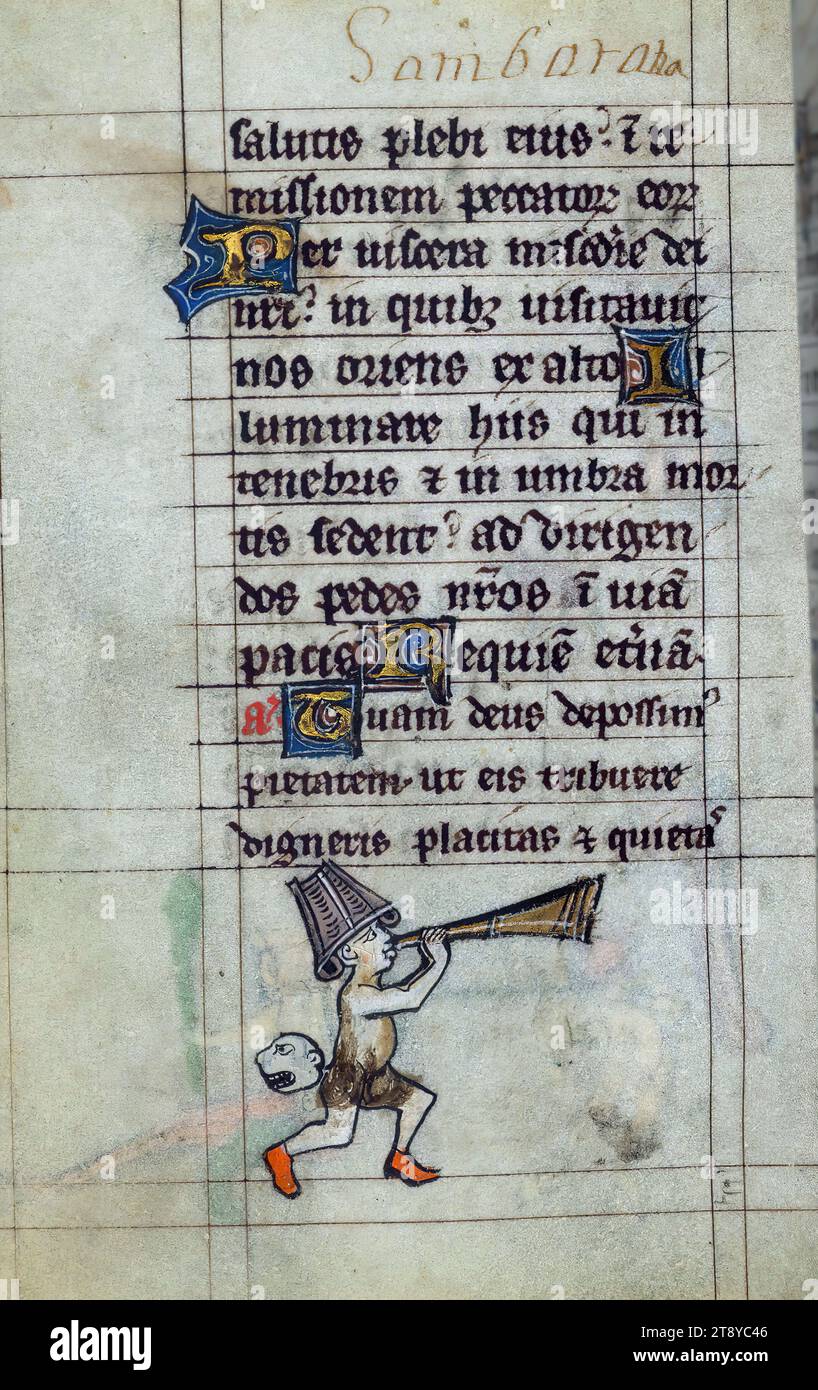 Sambaraha
salutis plebi eius? ⁊ re
missionem peccatoꝝ eoꝝ
Per uiscera mīsc̄die dei
nr̄i? in quibꝫ uisitauit
nos oriens ex alto Il
luminare hiis qui in
tenebris ⁊ in umbra mor
tis sedent? ad dirigen
dos pedes nr̄os ī uiā
pacis Requiē et̄nā.
Tuam deus deposcim᷒
pietatem. ut eis tribuere
digneris placitas ⁊ quietas
alamy
alamy
Image ID: 2T8YC46
www.alamy.com